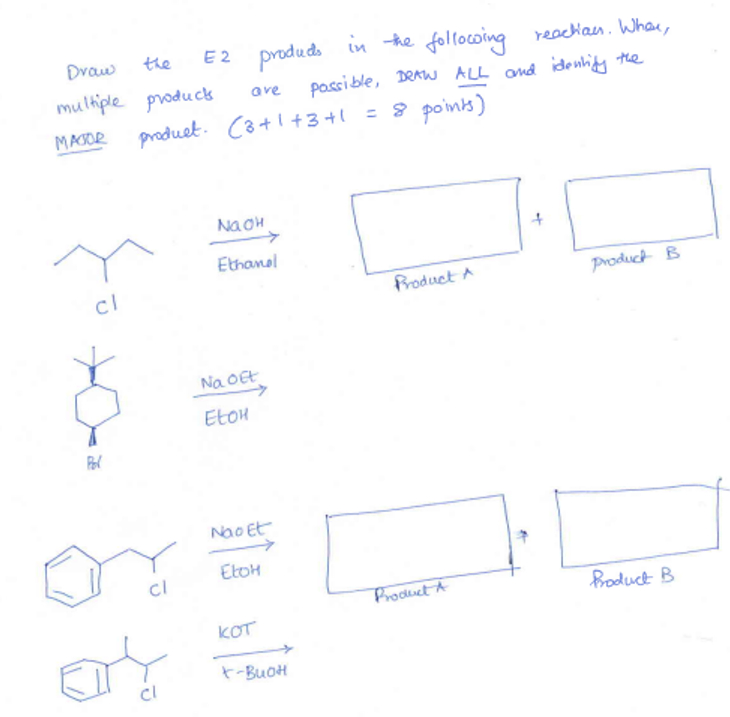 Draw the E2 products in the following reactions. When,
multiple products are possible, DRAW ALL and identify the
MAJOR product. (3+1+3+1 = 8 points)
NaOH
Ethanol
Cl
+
Product A
Product B
NaOEt
EtOH
Br
NaOEt
EtOH
Cl
+
Product A
Product B
KOT
t-BuOH
Cl